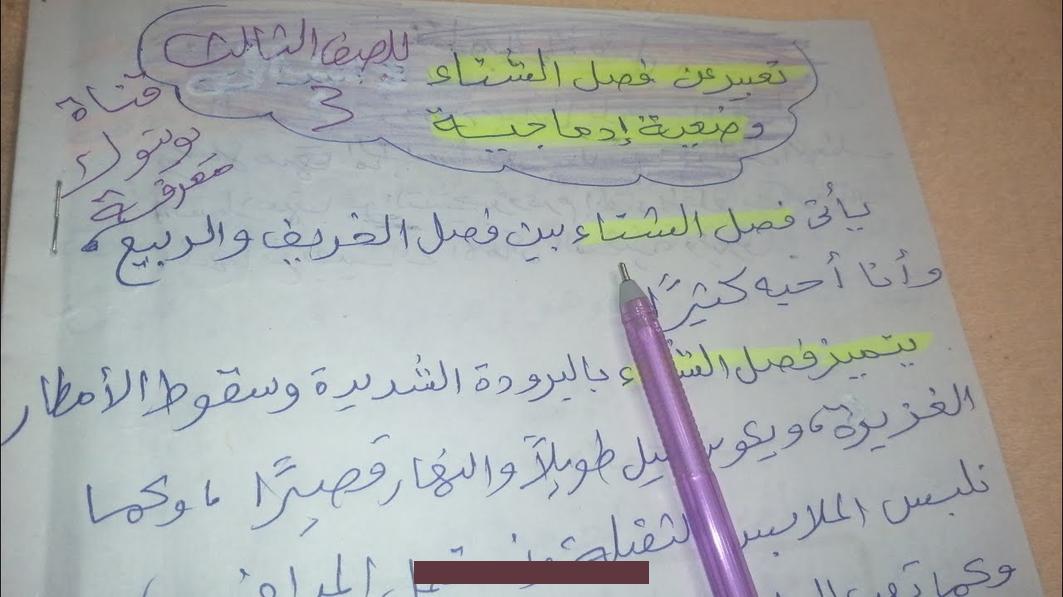 للصف الثالث
3
تعبير عن فصل الشتاء
وضعية إدماجية
قناة
يوتوك
معرفة
يأتي فصل الشتاء بين فصل الخريف والربيع،
وأنا أحبه كثيرًا
يتميز فصل بالبرودة الشديدة وسقوط الأمطار
الغزيرة، طويلاً والنهار قصيرًا، وكما
نلبس الملابس
وكما